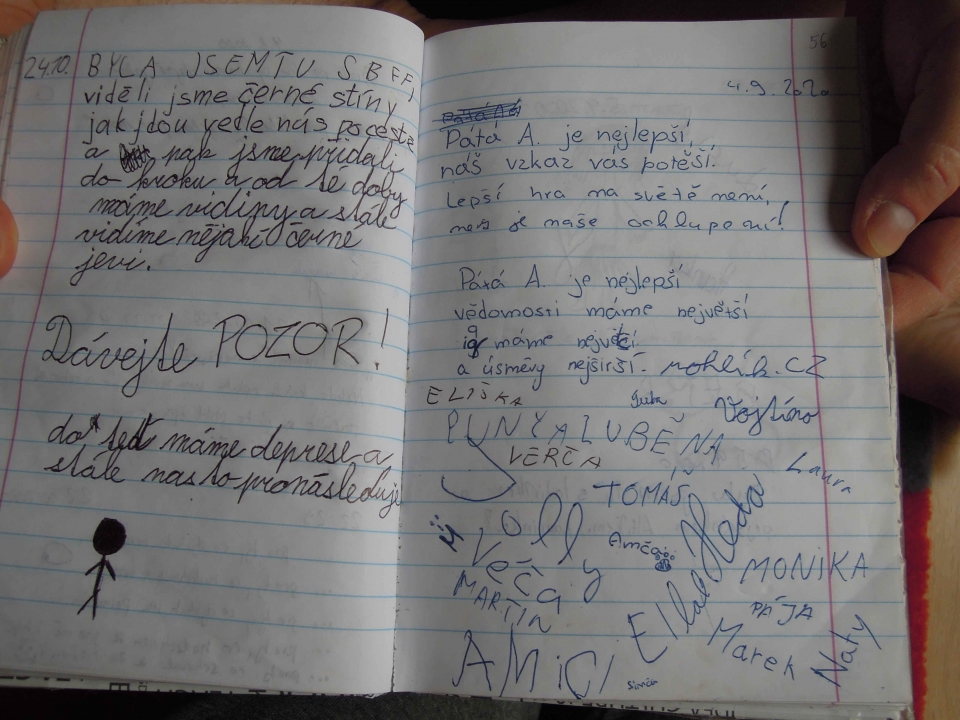 24.10. BYLA JSEM TU S BFF,
viděli jsme černé stíny
jak jdou vedle nás po cestě
a pak jsme přidali
do kroku a od té doby
máme vidiny a stále
vidíme nějaké černé
jevi.
Dávejte POZOR!
do teď máme deprese a
stále nas to pronásleduje
56
4.9.2020
Pátá A
Pátá A. je nejlepší,
náš vzkaz vás potěší.
Lepší hra na světě není,
než je naše ochlupení!
Pátá A. je nejlepší
vědomosti máme největší
iq máme největčí
a úsměvy nejširší. rohlík.CZ
ELIŠKA
Vojtíno
PUNYA LUBĚNA
VERČA
Laura
TOMÁŠ
Olly
Heda
Amča
Večа
MONIKA
MARTIN
Ella
PÁJA
Marek
Naty
AMICI
Simča